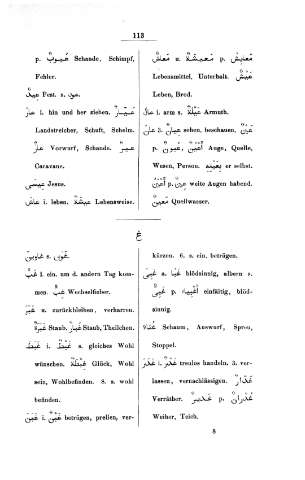 113
p. عُيُوبٌ Schande, Schimpf,
Fehler.
عِيدٌ Fest. s. عود.
عَارَ i. hin und her ziehen. عَيَّارٌ
Landstreicher, Schuft, Schelm.
عَارٌ Vorwurf, Schande. عِيرٌ
Caravane.
عِيسَى Jesus.
عَاشَ i. leben. عِيشَةٌ Lebensweise.
مَعَاشٌ u. مَعِيشَةٌ p. مَعَايِشُ
Lebensmittel, Unterhalt. عَيْشٌ
Leben, Brod.
عَالَ i. arm s. عَيْلَةٌ Armuth.
عَيْنٌ 3. عِيَانٌ sehen, beschauen.
p. عُيُونٌ, أَعْيُنٌ Auge, Quelle,
Wesen, Person. بِعَيْنِهِ er selbst.
عِينٌ p. أَعْيَنُ weite Augen habend.
مَعِينٌ Quellwasser.
غ
غَاوِينَ s. غوى.
غَبَّ i. ein. um d. andern Tag kom-
men. غِبٌّ Wechselfieber.
غَبَرَ u. zurückbleiben, verharren.
غَبَرَةٌ Staub. غُبَارٌ Staub, Theilchen.
غَبَطَ i. غَبْطٌ a. gleiches Wohl
wünschen. غِبْطَةٌ Glück, Wohl
sein, Wohlbefinden. 8. s. wohl
befinden.
غَبَنَ i. غَبْنٌ betrügen, prellen, ver-
kürzen. 6. s. ein. betrügen.
غَبِيَ a. غَبًا blödsinnig, albern s.
غَبِيٌّ p. أَغْبِيَاءُ einfältig, blöd-
sinnig.
غُثَاءٌ Schaum, Auswurf, Spreu,
Stoppel.
غَدَرَ i. غَدْرٌ treulos handeln. 3. ver-
lassen, vernachlässigen. غَدَّارٌ
Verräther. غَدِيرٌ p. غُدْرَانٌ
Weiher, Teich.
8